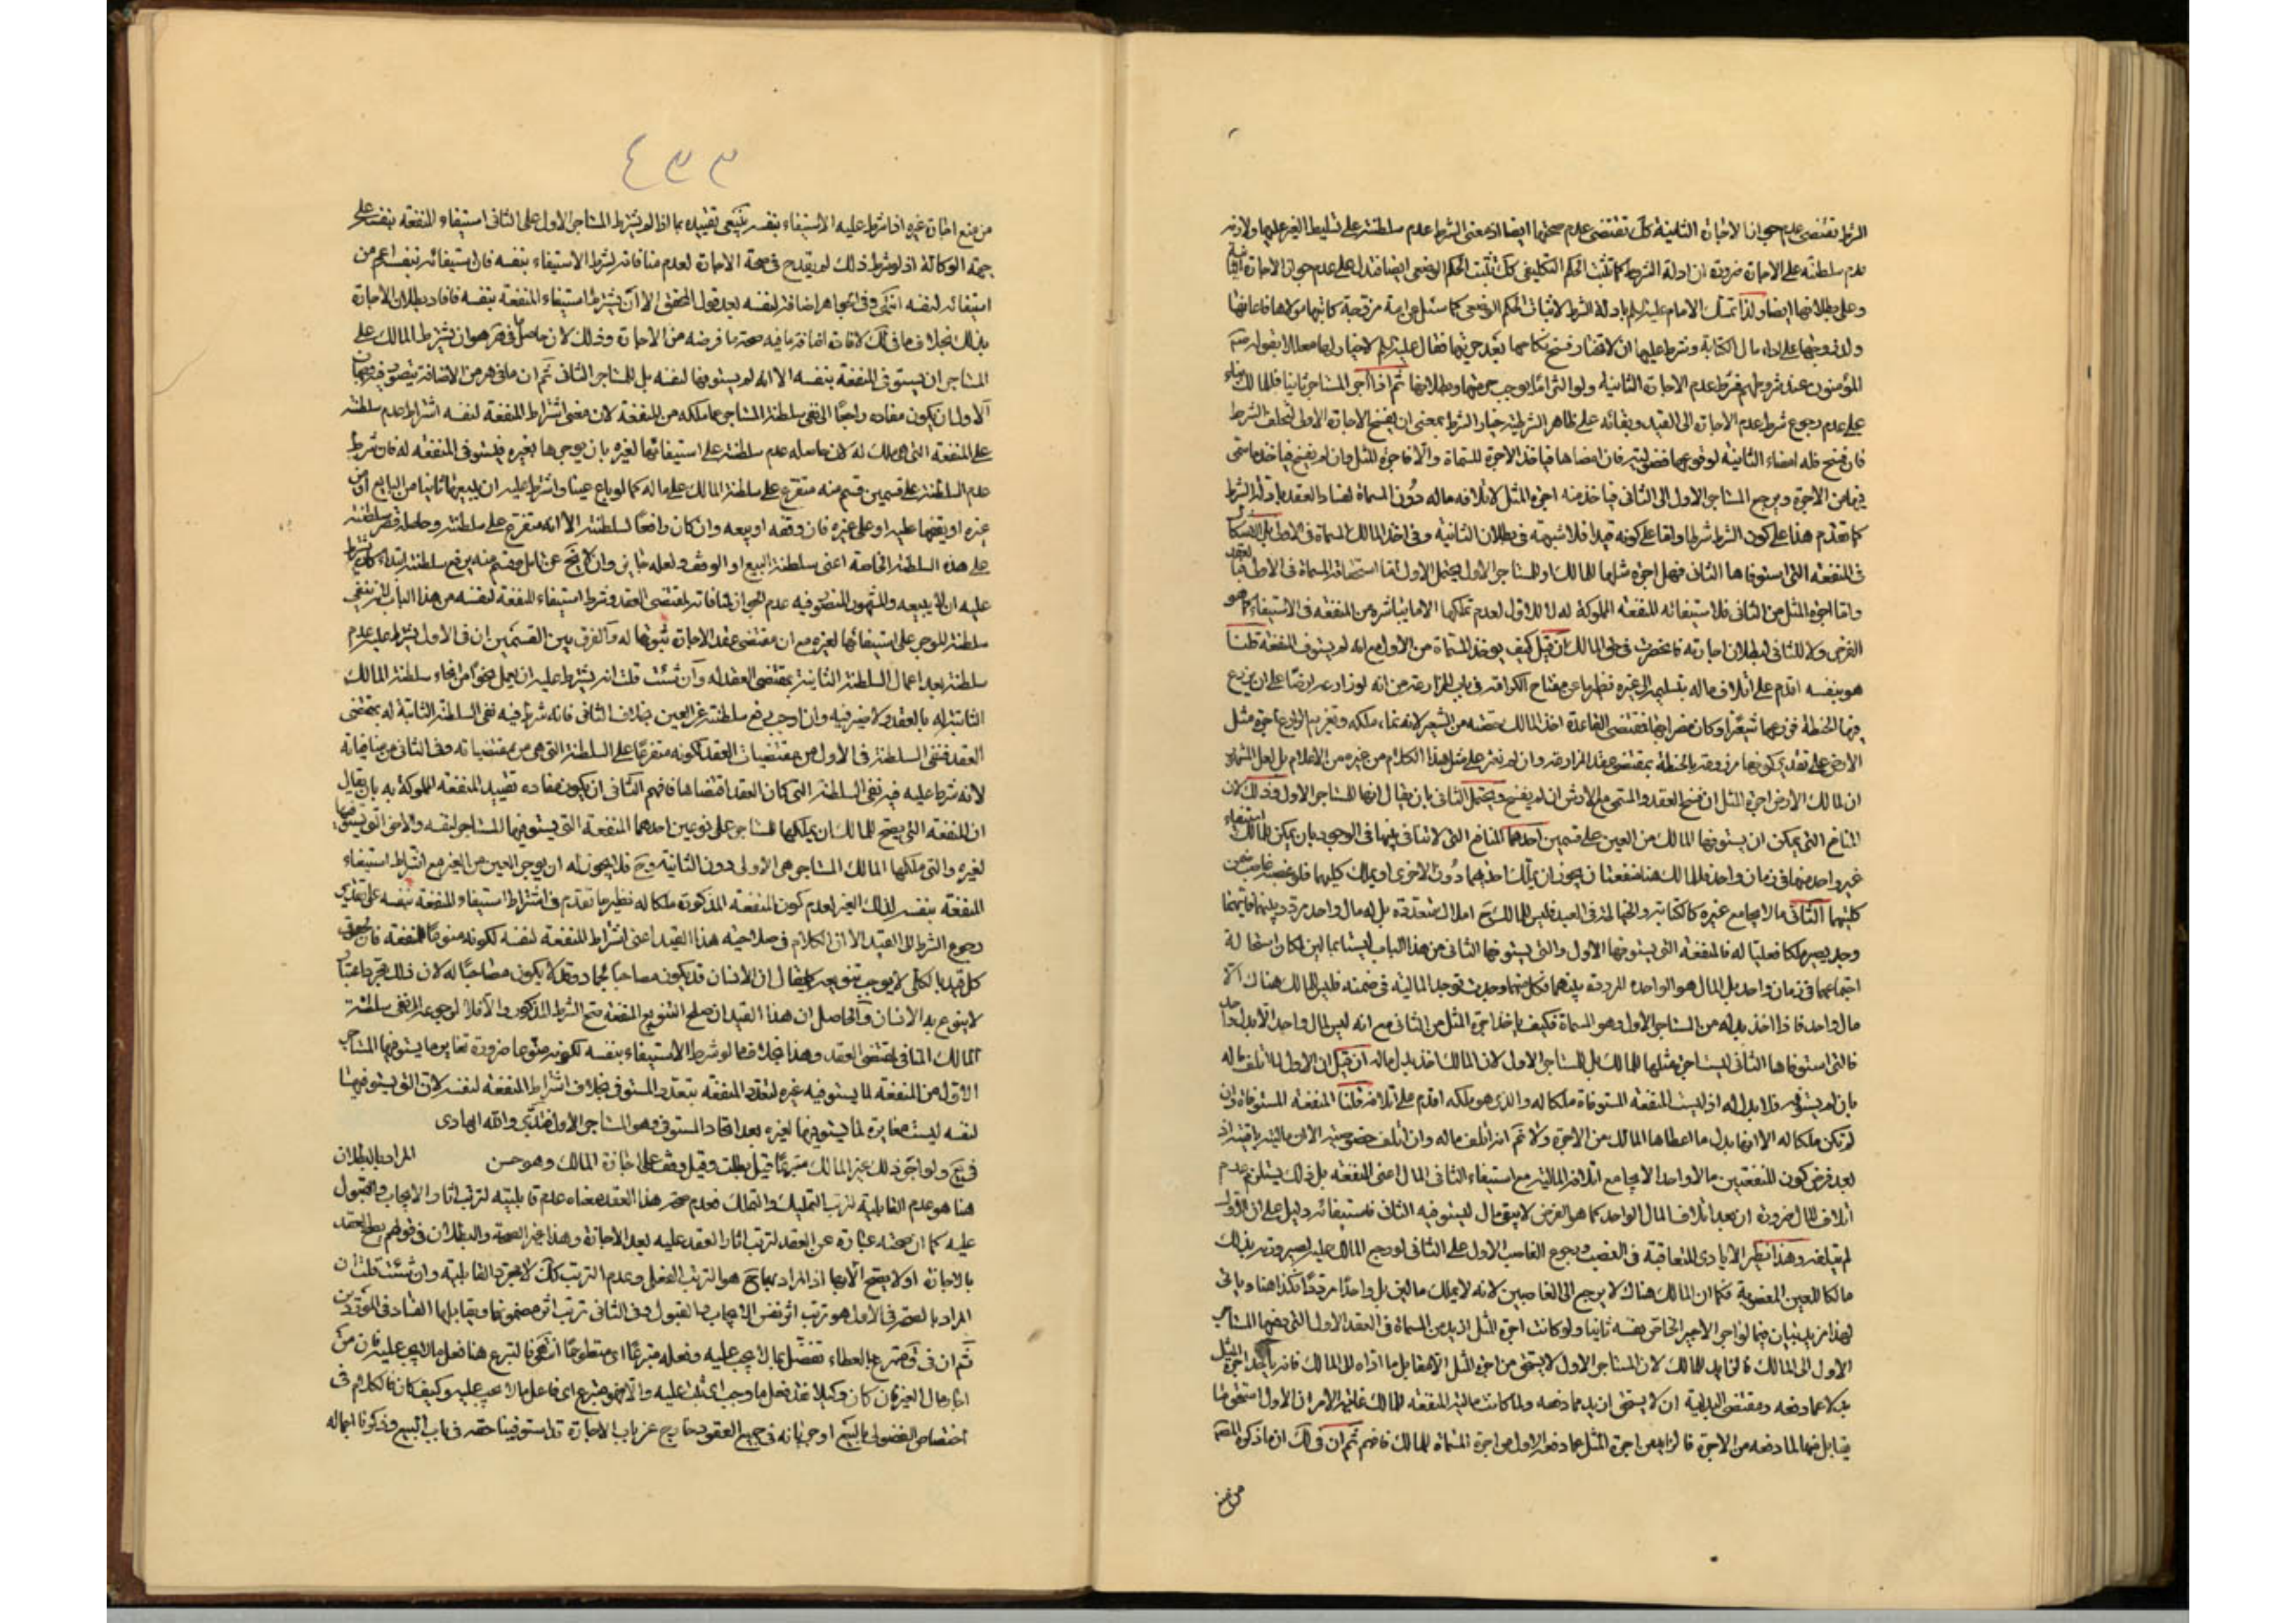 الشرط تقتضي عدم جواز الاجارة الثانية كك تقتضي عدم صحتها ايضا اذ معنى الشرط عدم سلطنته على تسليط الغير عليها ولازمه
عدم سلطنته على الاجارة ضرورة ان ادلة الشروط كما تثبت الحكم التكليفي كك تثبت الحكم الوضعي ايضا فتدل على عدم جواز الاجارة الثانية
وعلى بطلانها ايضا ولذا تمسك الامام عليه السلم بادلة الشرط لاثبات الحكم الوضعي كما سئل عن امة مزوجة كاتبها مولاها فاعانها
ولد زوجها على اداء مال الكتابة وشرط عليها ان لا تختار فسخ نكاحها بعد حريتها فقال عليه السلم لا خيار لها معللا بقوله ص
المؤمنون عند شروطهم فشرط عدم الاجارة الثانية ولو التزاما يوجب حرمتها وبطلانها ثم اذا آجر المستاجر ثانيا فللمالك بناء
على عدم رجوع شرط عدم الاجارة الى القيد وبقائه على ظاهر الشرطية خيار الشرط بمعنى ان يفسخ الاجارة الاولى لتخلف الشرط
فان فسخ فله امضاء الثانية لوقوعها فضولية فان امضاها فياخذ الاجرة المسماة والا فاجرة المثل وان لم يفسخ فياخذ ما سمى
فيها من الاجرة ويرجع المستاجر الاول الى الثاني فياخذ منه اجرة المثل لاتلافه ماله دون المسماة لفساد العقد بادلة الشرط
كما تقدم هذا على كون الشرط شرطا واما على كونه قيدا فلا شبهة في بطلان الثانية وفي اخذ المالك المسماة في الاولى بل الاشكال
في المنفعة التي استوفاها الثاني فهل اجرة مثلها للمالك او للمستاجر الاول يحتمل الاول اما استحقاقه المسماة في الاولى فبالعقد
واما اجرة المثل من الثاني فلاستيفائه للمنفعة المملوكة له لا للاول لعدم تملكها الا ما يباشره من المنفعة في الاستيفاء كما هو
الفرض ولا للثاني لبطلان اجارته فانحصرت في حق المالك ان قيل كيف يوخذ المسماة من الاول مع انه لم يستوف المنفعة قلنا
هو بنفسه اقدم على اتلاف ماله بتسليمه الى غيره نظير ما عن مفتاح الكرامة في باب المزارعة من انه لو زارعه ارضا على ان يزرع
فيها الحنطة فزرعها شعيرا وكان مضرا بها فمقتضى القاعدة اخذ المالك حصته من الشعير لانه نماء ملكه وتغريم الزارع اجرة مثل
الارض على تقدير كونها مزروعة بالحنطة بمقتضى عقد المزارعة وان لم نعثر على مثل هذا الكلام من غيره من الاعلام بل لعل المشهور
ان لمالك الارض اجرة المثل ان فسخ العقد والمسمى مع الارش ان لم يفسخ ويحتمل الثاني بان يقال انها للمستاجر الاول وذلك لان
المنافع التي يمكن ان يستوفيها المالك من العين على قسمين احدهما المنافع التي لا تنافي بينها في الوجود بان يمكن للمالك استيفاء
غير واحد منها في زمان واحد فللمالك هنا منفعتان يجوز ان يملك احديهما دون الاخرى او يملك كليهما فلو غصبه غاصب ضمن
كليهما الثاني ما لا يجامع غيره كالكتابة والخياطة في العبد فليس للمالك ح املاك متعددة بل له مال واحد مردد بينهما فايتهما
وجد يصير ملكا فعليا له فالمنفعة التي يستوفيها الاول والتي يستوفيها الثاني من هذا الباب ليستا بمالين لمكان استحالة
اجتماعهما في زمان واحد بل المال هو الواحد المردد بينهما فكل منهما وجدت توجد المالية في ضمنه فليس للمالك هناك الا
مال واحد فاذا اخذ بدله من المستاجر الاول وهو المسماة فكيف ياخذ اجرة المثل من الثاني مع انه ليس لمال واحد الا بدل واحد
فالتي استوفاها الثاني ليست اجرة مثلها للمالك بل للمستاجر الاول لان المالك اخذ بدل ماله ان قيل ان الاول لما اتلف ماله
بان لم يستوفه فلا بدل له اذ ليست المنفعة المستوفاة ملكا له والذي هو ملكه اقدم على اتلافه قلنا المنفعة المستوفاة وان
لم تكن ملكا له الا انها بدل ما اعطاها المالك من الاجرة ولا نم انه اتلف ماله وان اتلف خصوصيته الا ان ماليته باقية اذ
بعد فرض كون المنفعتين مالا واحدا لا يجامع اتلاف المالية مع استيفاء الثاني المال اعني المنفعة بل ذلك يستلزم عدم
اتلاف المال ضرورة ان بعد اتلاف المال الواحد كما هو الفرض لا يبقى مال ليستوفيه الثاني فاستيفائه دليل على ان الاول
لم يتلفه وهذا نظير الايادي المتعاقبة في الغصب ورجوع الغاصب الاول على الثاني لو رجع المالك عليه لصيرورته بذلك
مالكا للعين المغصوبة فكما ان المالك هناك لا يرجع الى الغاصبين لانه لا يملك مالين بل واحدا مرددا فكذا هنا وياتي
لهذا مزيد بيان فيما لو اجر الاجير الخاص نفسه ثانيا ولو كانت اجرة المثل ازيد من المسماة في العقد الاول التي دفعها المستاجر
الاول الى المالك فالزايد للمالك لان المستاجر الاول لا يستحق من اجرة المثل الا بمقابل ما اداه الى المالك فانه ياخذ اجرة المثل
بدلا عما دفعه ومقتضى البدلية ان لا يستحق ازيد مما دفعه ولما كانت مالية المنفعة للمالك غاية الامر ان الاول استحق ما
يقابل منها لما دفعه من الاجرة فالزايد من اجرة المثل عما دفعه الاول من اجرة المسماة للمالك فافهم ثم ان في لك ان ما ذكره المص
من منع
٤٣٣
من منع اجارة غيره اذا شرط عليه الاستيفاء بنفسه ينبغي تقييده بما اذا لم يشترط المستاجر الاول على الثاني استيفاء المنفعة بنفسه على
جهة الوكالة اذ لو شرط ذلك لم يقدح في صحة الاجارة لعدم منافاته لشرط الاستيفاء بنفسه فان استيفائه بنفسه اعم من
استيفائه لنفسه انتهى وفي الجواهر اضافة لنفسه بعد قول المحقق الا ان يشترط استيفاء المنفعة بنفسه فافاد بطلان الاجارة
بذلك بخلاف ما في لك لافادة اضافة ما فيه صحة ما فرضه من الاجارة وذلك لان ما حصل في هر هو ان يشترط المالك على
المستاجر ان يستوفي المنفعة بنفسه الا انه لم يستوفها لنفسه بل للمستاجر الثاني ثم ان ما في هر من الاضافة يتصور فيه وجهان
الاول ان يكون مفاده راجعا الى نفي سلطنة المستاجر عما ملكه من المنفعة لان معنى اشتراط المنفعة لنفسه اشتراط عدم سلطنته
على المنفعة التي هي ملك له لان حاصله عدم سلطنته على استيفائها لغيره بان يوجرها بغيره فيستوفي المنفعة له فان شرط
عدم السلطنة على قسمين قسم منه متفرع على سلطنة المالك على ماله كما لو باع عينا واشترط عليه ان يبيعها ثانيا من البايع او من
غيره او يقفها عليه او على غيره فان وقفه او بيعه وان كان رافعا لسلطنته الا انه متفرع على سلطنته وحاصله قصر سلطنته
على هذه السلطنة الخاصة اعني سلطنة البيع او الوقف ولعله جايز وان لا يخ عن تامل وقسم منه يرفع سلطنته ابتداء كان يشترط
عليه ان لا يبيعه والمشهور المنصور فيه عدم الجواز لمنافاته لمقتضى العقد وشرط استيفاء المنفعة لنفسه من هذا الباب اذ نفي
سلطنة الموجر على استيفائها لغيره مع ان مقتضى عقد الاجارة ثبوتها له والفرق بين القسمين ان في الاول يشترط عليه عدم
سلطنته بعد اعمال السلطنة الثابتة بمقتضى العقد له وان شئت قلت انه يشترط عليه ان يعمل نحوا من انحاء سلطنة المالك
الثابتة له بالعقد ولا ضير فيه وان اوجب رفع سلطنته عن العين بخلاف الثاني فانه شرط فيه نفي السلطنة الثابتة له بمقتضى
العقد فنفي السلطنة في الاول من مقتضيات العقد لكونه متفرعا على السلطنة التي هي من مقتضياته وفي الثاني من منافياته
لانه شرط عليه فيه نفي السلطنة التي كان العقد اقتضاها فافهم الثاني ان يكون مفاده تقييد المنفعة المملوكة به بان يقال
ان المنفعة التي يصح للمالك ان يملكها للمستاجر على نوعين احدهما المنفعة التي يستوفيها المستاجر لنفسه والاخرى التي يستوفيها
لغيره والتي ملكها المالك المستاجر هي الاولى دون الثانية وح فلا يجوز له ان يوجر العين من الغير مع اشتراط استيفاء
المنفعة بنفسه لذلك الغير لعدم كون المنفعة المذكورة ملكا له نظير ما تقدم في اشتراط استيفاء المنفعة بنفسه على تقدير
رجوع الشرط الى القيد الا ان الكلام في صلاحية هذا القيد اعني اشتراط المنفعة لنفسه لكونه منوعا للمنفعة فان لحوق
كل قيد بالكلي لا يوجب تنويعه كما يقال ان الانسان قد يكون مصاحبا لجماد وقد لا يكون مصاحبا له لان ذلك مجرد اعتبار
لا يتنوع به الانسان والحاصل ان هذا القيد ان صلح لتنويع المنفعة صح الشرط المذكور والا فلا لرجوعه الى نفي سلطنة
المالك المنافي لمقتضى العقد وهذا بخلاف ما لو شرط الاستيفاء بنفسه لكونه منوعا ضرورة تغاير ما يستوفيها المستاجر
الاول من المنفعة لما يستوفيه غيره لتعدد المنفعة بتعدد المستوفي بخلاف اشتراط المنفعة لنفسه لان التي يستوفيها
لنفسه ليست مغايرة لما يستوفيها لغيره بعد اتحاد المستوفي وهو المستاجر الاول فتدبر والله الهادي
في يع ولو آجر ذلك غير المالك متبرعا قيل بطلت وقيل وقف على اجازة المالك وهو حسن المراد بالبطلان
هنا هو عدم القابلية لترتب التمليك والتملك فعدم صحة هذا العقد معناه عدم قابليته لترتب اثار الايجاب والقبول
عليه كما ان صحته عبارة عن العقد لترتب اثار العقد عليه بعد الاجازة وهذا غير الصحة والبطلان في قولهم يصح العقد
بالاجازة او لا يصح الا بها اذ المراد بها ح هو الترتب الفعلي وعدم الترتب كك لا مجرد القابلية وان شئت قلت ان
المراد بالصحة في الاول هو ترتب اثر نفس الايجاب والقبول وفي الثاني ترتب اثر مضمونها ويقابلها الفساد في الموردين
ثم ان في ق تبرع بالعطاء تفضل بما لا يجب عليه وفعله متبرعا اي متطوعا انتهى فالتبرع هنا فعل ما لا يجب عليه فان من
اجار مال الغير فان كان وكيلا عنه فعل ما وجب اي ثبت عليه والا فهو متبرع اي فاعل ما لا يجب عليه وكيف كان فالكلام في
اختصاص الفضولي بالبيع او جريانه في جميع العقود خارج عن باب الاجارة قد استوفينا حقه في باب البيع وذكرنا اجماله